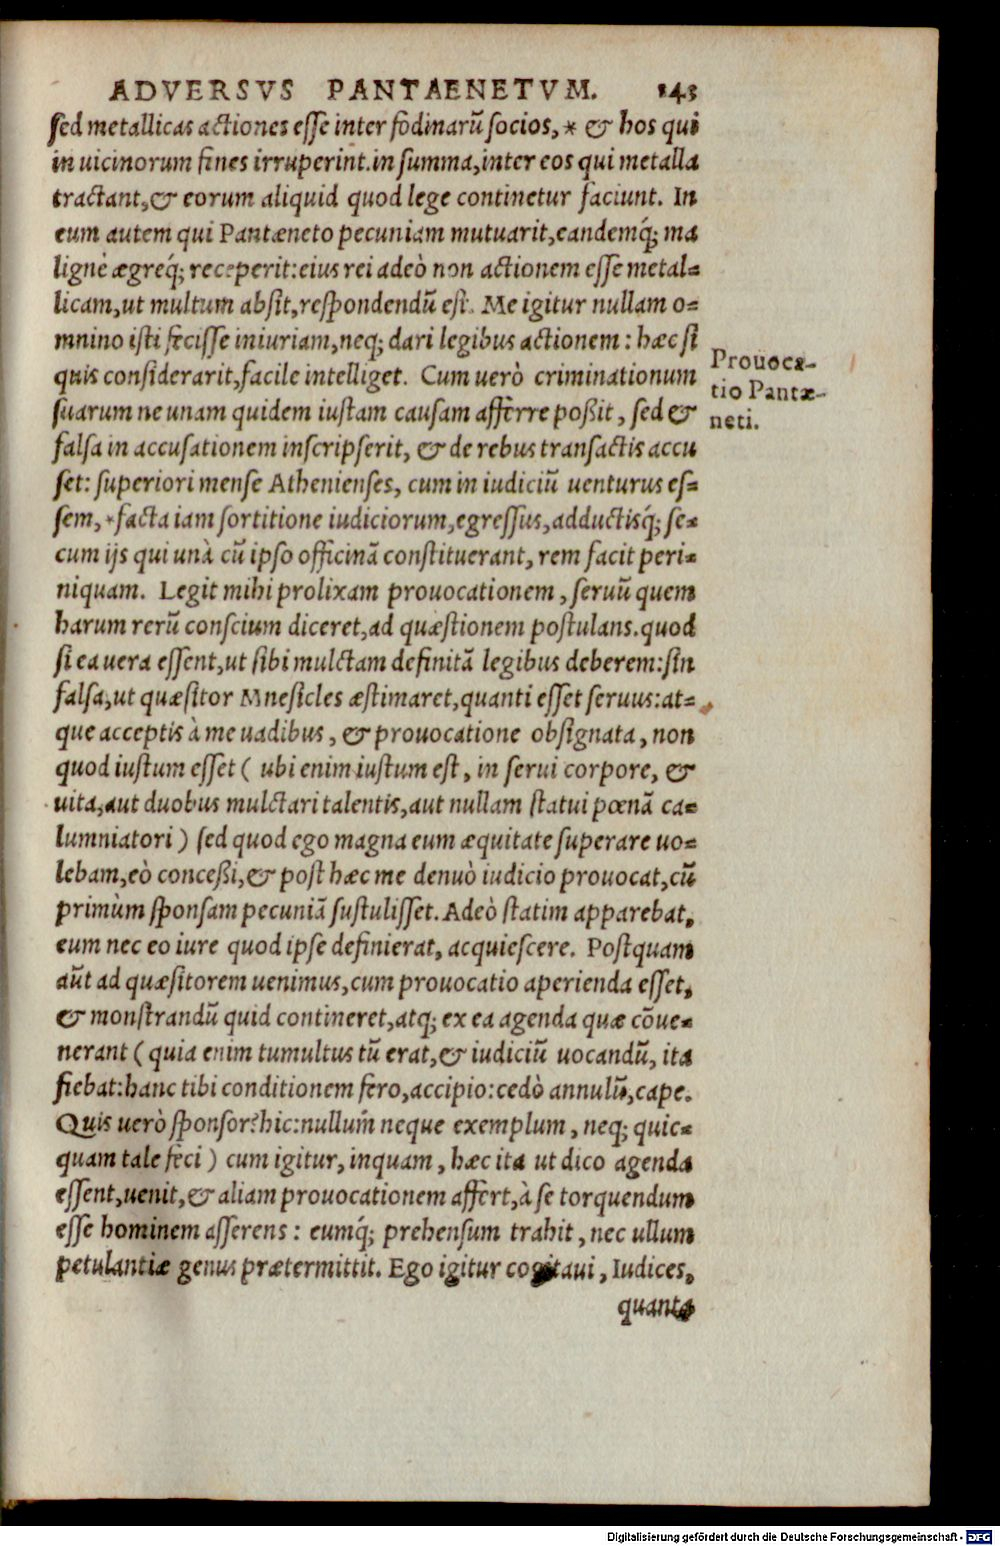 ADVERSVS PANTAENETVM. 143
sed metallicas actiones esse inter fodinarũ socios, * & hos qui
in uicinorum fines irruperint. in summa, inter eos qui metalla
tractant, & eorum aliquid quod lege continetur faciunt. In
eum autem qui Pantæneto pecuniam mutuarit, eandemq́; ma
lignè ægreq́; receperit: eius rei adeò non actionem esse metal=
licam, ut multum absit, respondendũ est. Me igitur nullam o=
mnino isti fecisse iniuriam, neq; dari legibus actionem: hæc si
quis considerarit, facile intelliget. Cum uerò criminationum
suarum ne unam quidem iustam causam afferre poßit, sed &
falsa in accusationem inscripserit, & de rebus transactis accu
set: superiori mense Athenienses, cum in iudiciũ uenturus es=
sem, *facta iam sortitione iudiciorum, egressus, adductisq́; se=
cum ijs qui unà cũ ipso officinã constituerant, rem facit peri=
niquam. Legit mihi prolixam prouocationem, seruũ quem
harum rerũ conscium diceret, ad quæstionem postulans. quod
si ea uera essent, ut sibi mulctam definitã legibus deberem: sin
falsa, ut quæsitor Mnesicles æstimaret, quanti esset seruus: at=
que acceptis à me uadibus, & prouocatione obsignata, non
quod iustum esset ( ubi enim iustum est, in serui corpore, &
uita, aut duobus mulctari talentis, aut nullam statui pœnã ca=
lumniatori ) sed quod ego magna eum æquitate superare uo=
lebam, eò conceßi, & post hæc me denuò iudicio prouocat, cũ
primùm sponsam pecuniã sustulisset. Adeò statim apparebat,
eum nec eo iure quod ipse definierat, acquiescere. Postquam
aũt ad quæsitorem uenimus, cum prouocatio aperienda esset,
& monstrandũ quid contineret, atq; ex ea agenda quæ cõue=
nerant ( quia enim tumultus tũ erat, & iudiciũ uocandũ, ita
fiebat: hanc tibi conditionem fero, accipio: cedò annulũ, cape.
Quis uerò sponsor? hic: nullum̃ neque exemplum, neq; quic=
quam tale feci ) cum igitur, inquam, hæc ita ut dico agenda
essent, uenit, & aliam prouocationem affert, à se torquendum
esse hominem asserens : eumq́; prehensum trahit, nec ullum
petulantiæ genus prætermittit. Ego igitur cogitaui, Iudices,
quanta
Prouoca-
tio Pantæ-
neti.
Digitalisierung gefördert durch die Deutsche Forschungsgemeinschaft - DFG